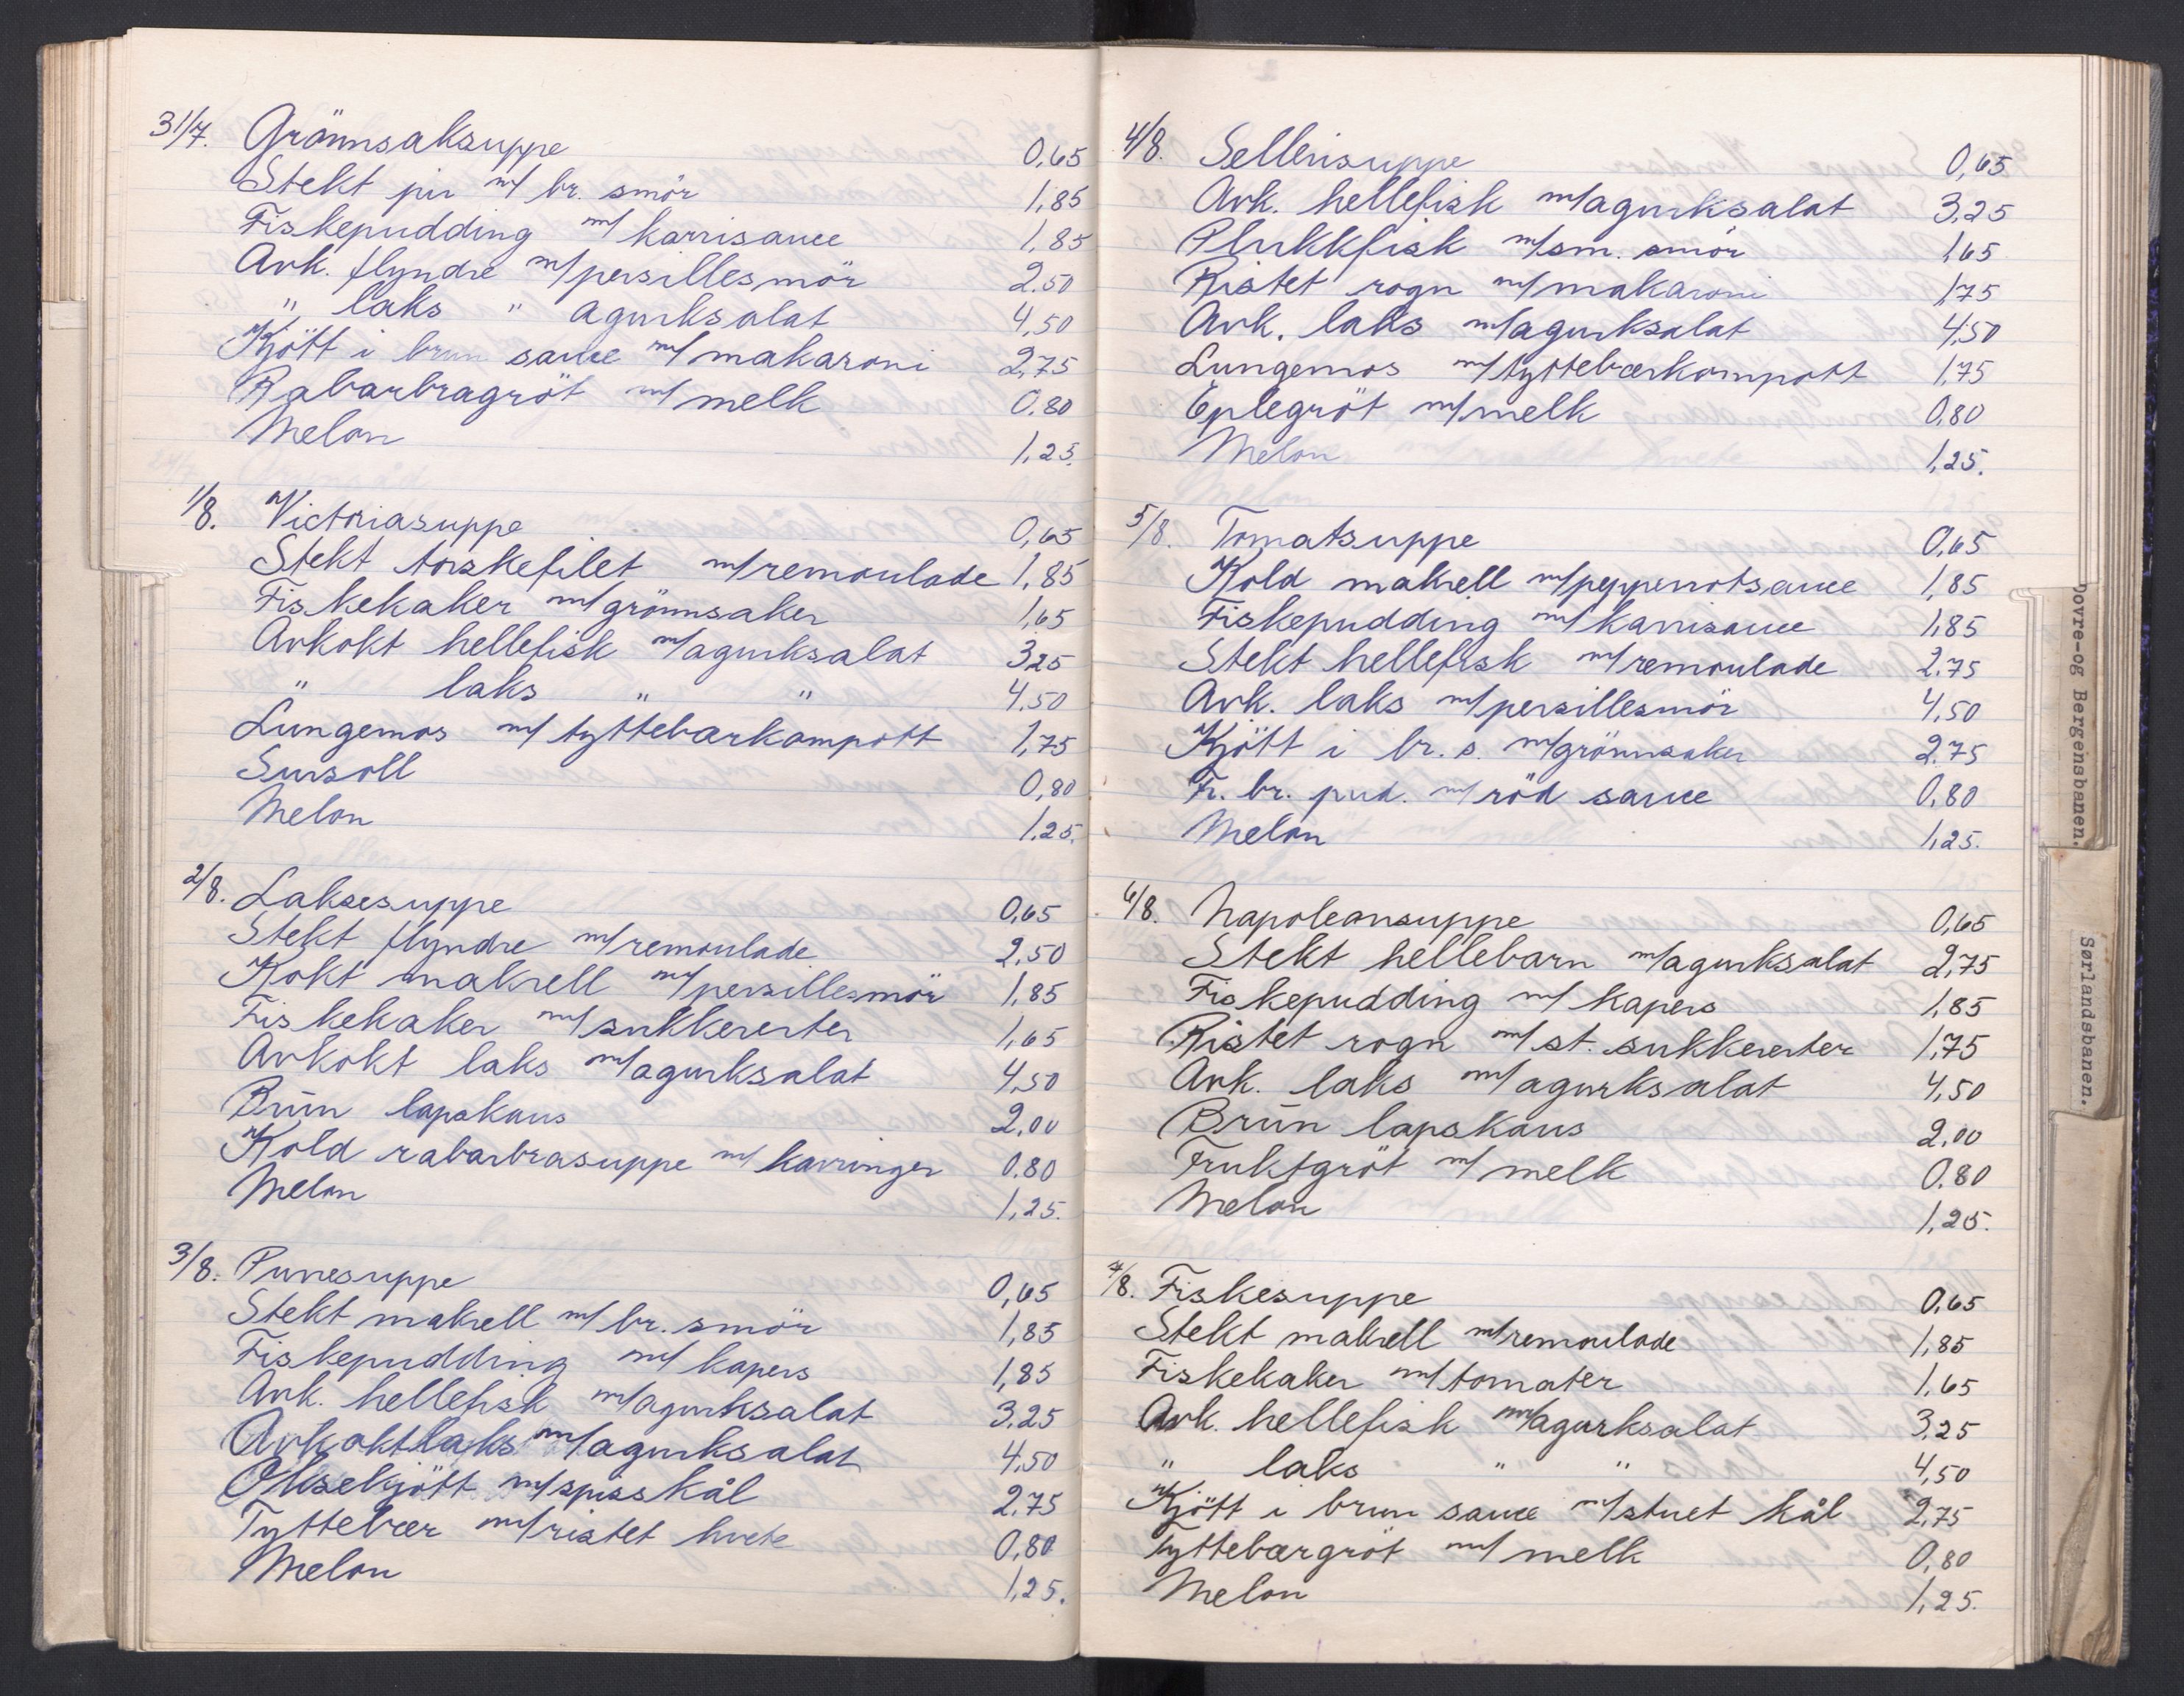 31/7. Grönnsaksuppe 0,65
Stekt pir m/ br. smör 1,85
Fiskepudding m/ karrisauce 1,85
Avk. flyndre m/persillesmör 2.50
" laks " agurksalat 4,50
Kjött i brun sauce m/makaroni 2,75
Rabarbragröt m/ melk 0.80
Melon 1,25.
1/8. Victoriasuppe 0,65
Stekt torskefilet m/remoulade 1,85
Fiskekaker m/grönnsaker 1,65
Avkokt hellefisk m/agurksalat 3.25
" laks " " 4,50
Lungemos m/ tyttebærkompott 1,75
Sursoll 0,80
Melon 1.25.
2/8. Laksesuppe 0,65
Stekt flyndre m/remoulade 2,50
Kokt makrell m/persillesmör 1,85
Fiskekaker m/sukkererter 1,65
Avkokt laks m/agurksalat 4,50
Brun lapskaus 2,00
Kold rabarbrasuppe m/ kavringer 0.80
Melon 1,25.
3/8. Purresuppe 0,65
Stekt makrell m/ br. smör 1,85
Fiskepudding m/ kapers 1,85
Avk. hellefisk m/agurksalat 3.25
Avkokt laks m/agurksalat 4,50
Oksekjött m/spisskål 2.75
Tyttebær m/ristet hvete 0,80
Melon 1,25.
4/8. Sellerisuppe 0,65
Avk. hellefisk m/agurksalat 3,25
Plukkfisk m/sm. smör 1,65
Ristet rogn m/makaroni 1,75
Avk. laks m/agurksalat 4,50
Lungemos m/tyttebærkompott 1,75
Eplegröt m/melk 0,80
Melon 1,25.
5/8. Tomatsuppe 0,65
Kold makrell m/pepperrotsauce 1,85
Fiskepudding m/karrisauce 1,85
Stekt hellefisk m/remoulade 2.75
Avk. laks m/persillesmör 4,50
Kjött i br. s. m/grönnsaker 2.75
Fr. br. pud. m/röd sauce 0,80
Melon 1,25.
6/8. Napoleonsuppe 0,65
Stekt hellebarn m/agurksalat 2,75
Fiskepudding m/ kapers 1,85
Ristet rogn m/ st. sukkererter 1,75
Avk. laks m/agurksalat 4,50
Brun lapskaus 2,00
Fruktgröt m/ melk 0.80
Melon 1,25.
7/8. Fiskesuppe 0.65
Stekt makrell m/remoulade 1,85
Fiskekaker m/tomater 1.65
Avk. hellefisk m/agurksalat 3.25
" laks " " 4,50
Kjött i brun sauce m/stuet kål 2,75
Tyttebærgröt m/ melk 0,80
Melon 1,25.
Dovre-og Bergensbanen.
Sørlandsbanen.